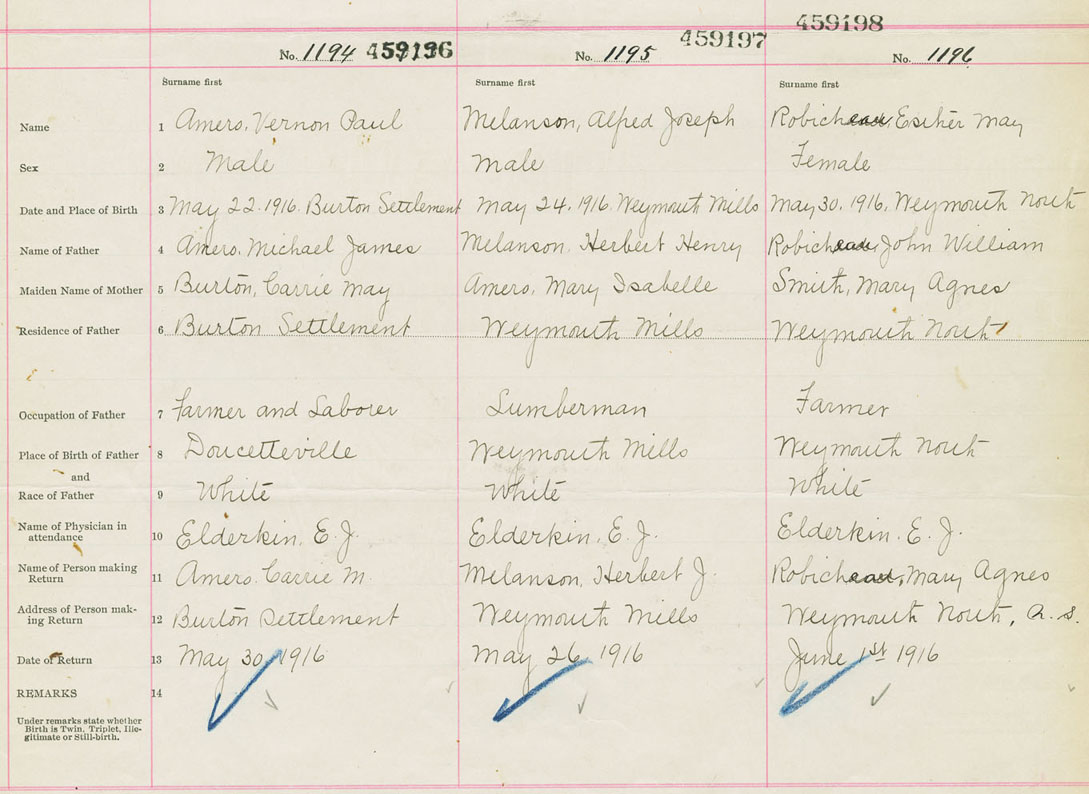 459198
No. 1194 459196 No. 1195 459197 No. 1196
Surname first Surname first Surname first
Name 1 Amero, Vernon Paul Melanson, Alfred Joseph Robicheau, Esther May
Sex 2 Male Male Female
Date and Place of Birth 3 May 22. 1916. Burton Settlement May 24. 1916. Weymouth Mills May 30. 1916. Weymouth North
Name of Father 4 Amero. Michael James Melanson. Herbert Henry Robicheau, John William
Maiden Name of Mother 5 Burton, Carrie May Amero. Mary Isabelle Smith, Mary Agnes
Residence of Father 6 Burton Settlement Weymouth Mills Weymouth North
Occupation of Father 7 Farmer and Laborer Lumberman Farmer
Place of Birth of Father 8 Doucetteville Weymouth Mills Weymouth North
and
Race of Father 9 White White White
Name of Physician in
attendance 10 Elderkin. E. J. Elderkin. E. J. Elderkin. E. J.
Name of Person making
Return 11 Amero. Carrie M. Melanson. Herbert J. Robicheau, Mary Agnes
Address of Person mak-
ing Return 12 Burton Settlement Weymouth Mills Weymouth North, N. S.
Date of Return 13 May 30, 1916 May 26, 1916 June 1st 1916
REMARKS 14
Under remarks state whether
Birth is Twin, Triplet, Ille-
gitimate or Still-birth.